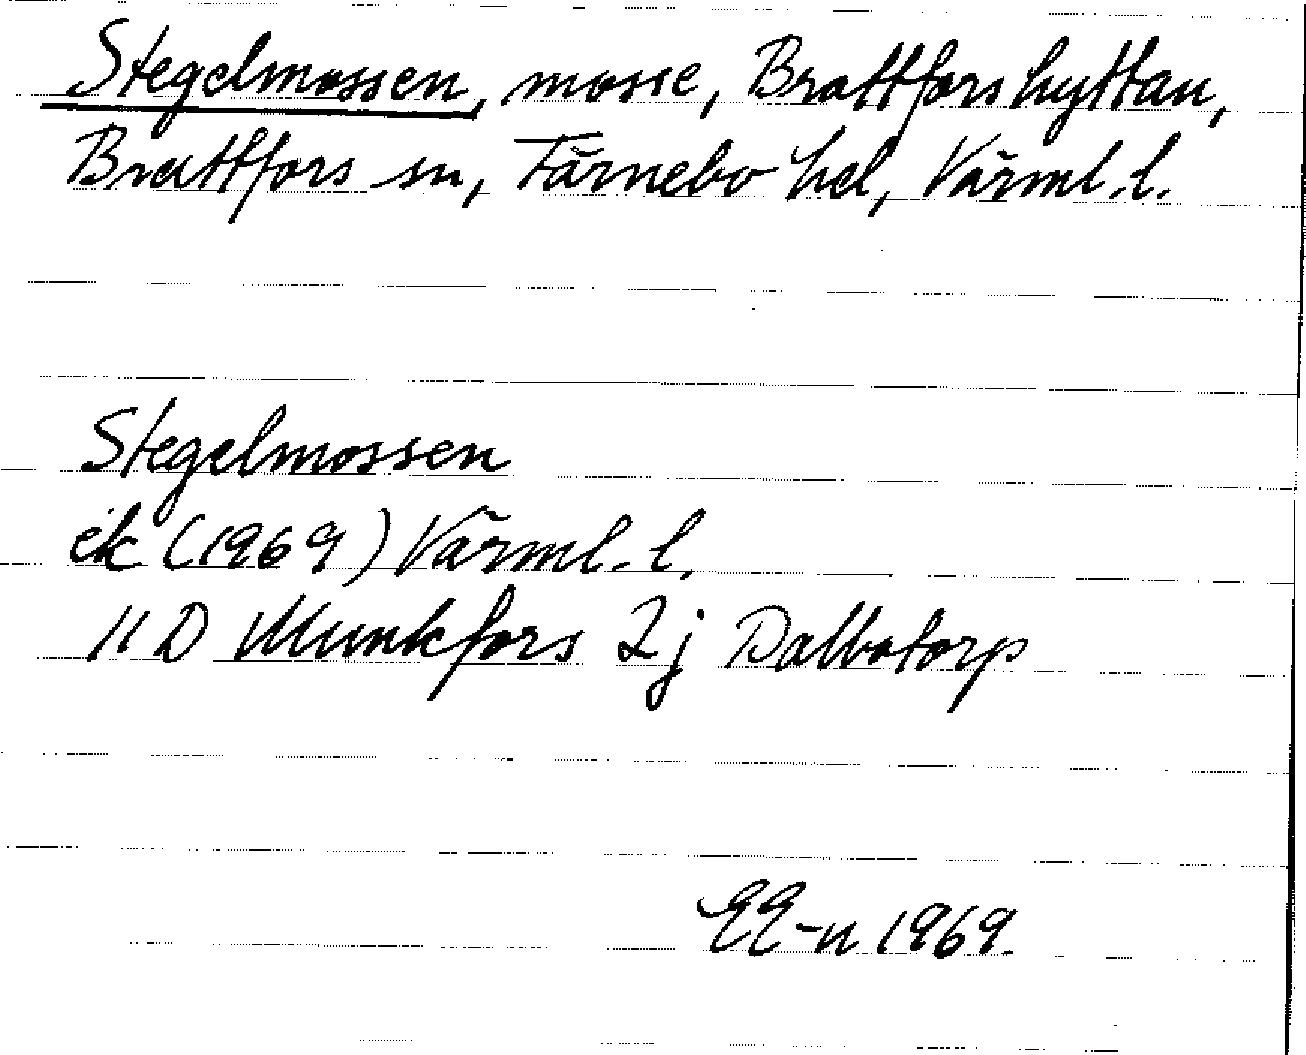 Stegelmossen, mosse, Brattforshyttan,
Brattfors sn, Färnebo hd, Värml. l.
Stegelmossen
ek (1969) Värml. l.
11 D Munkfors 2j Dalbotorp
1969